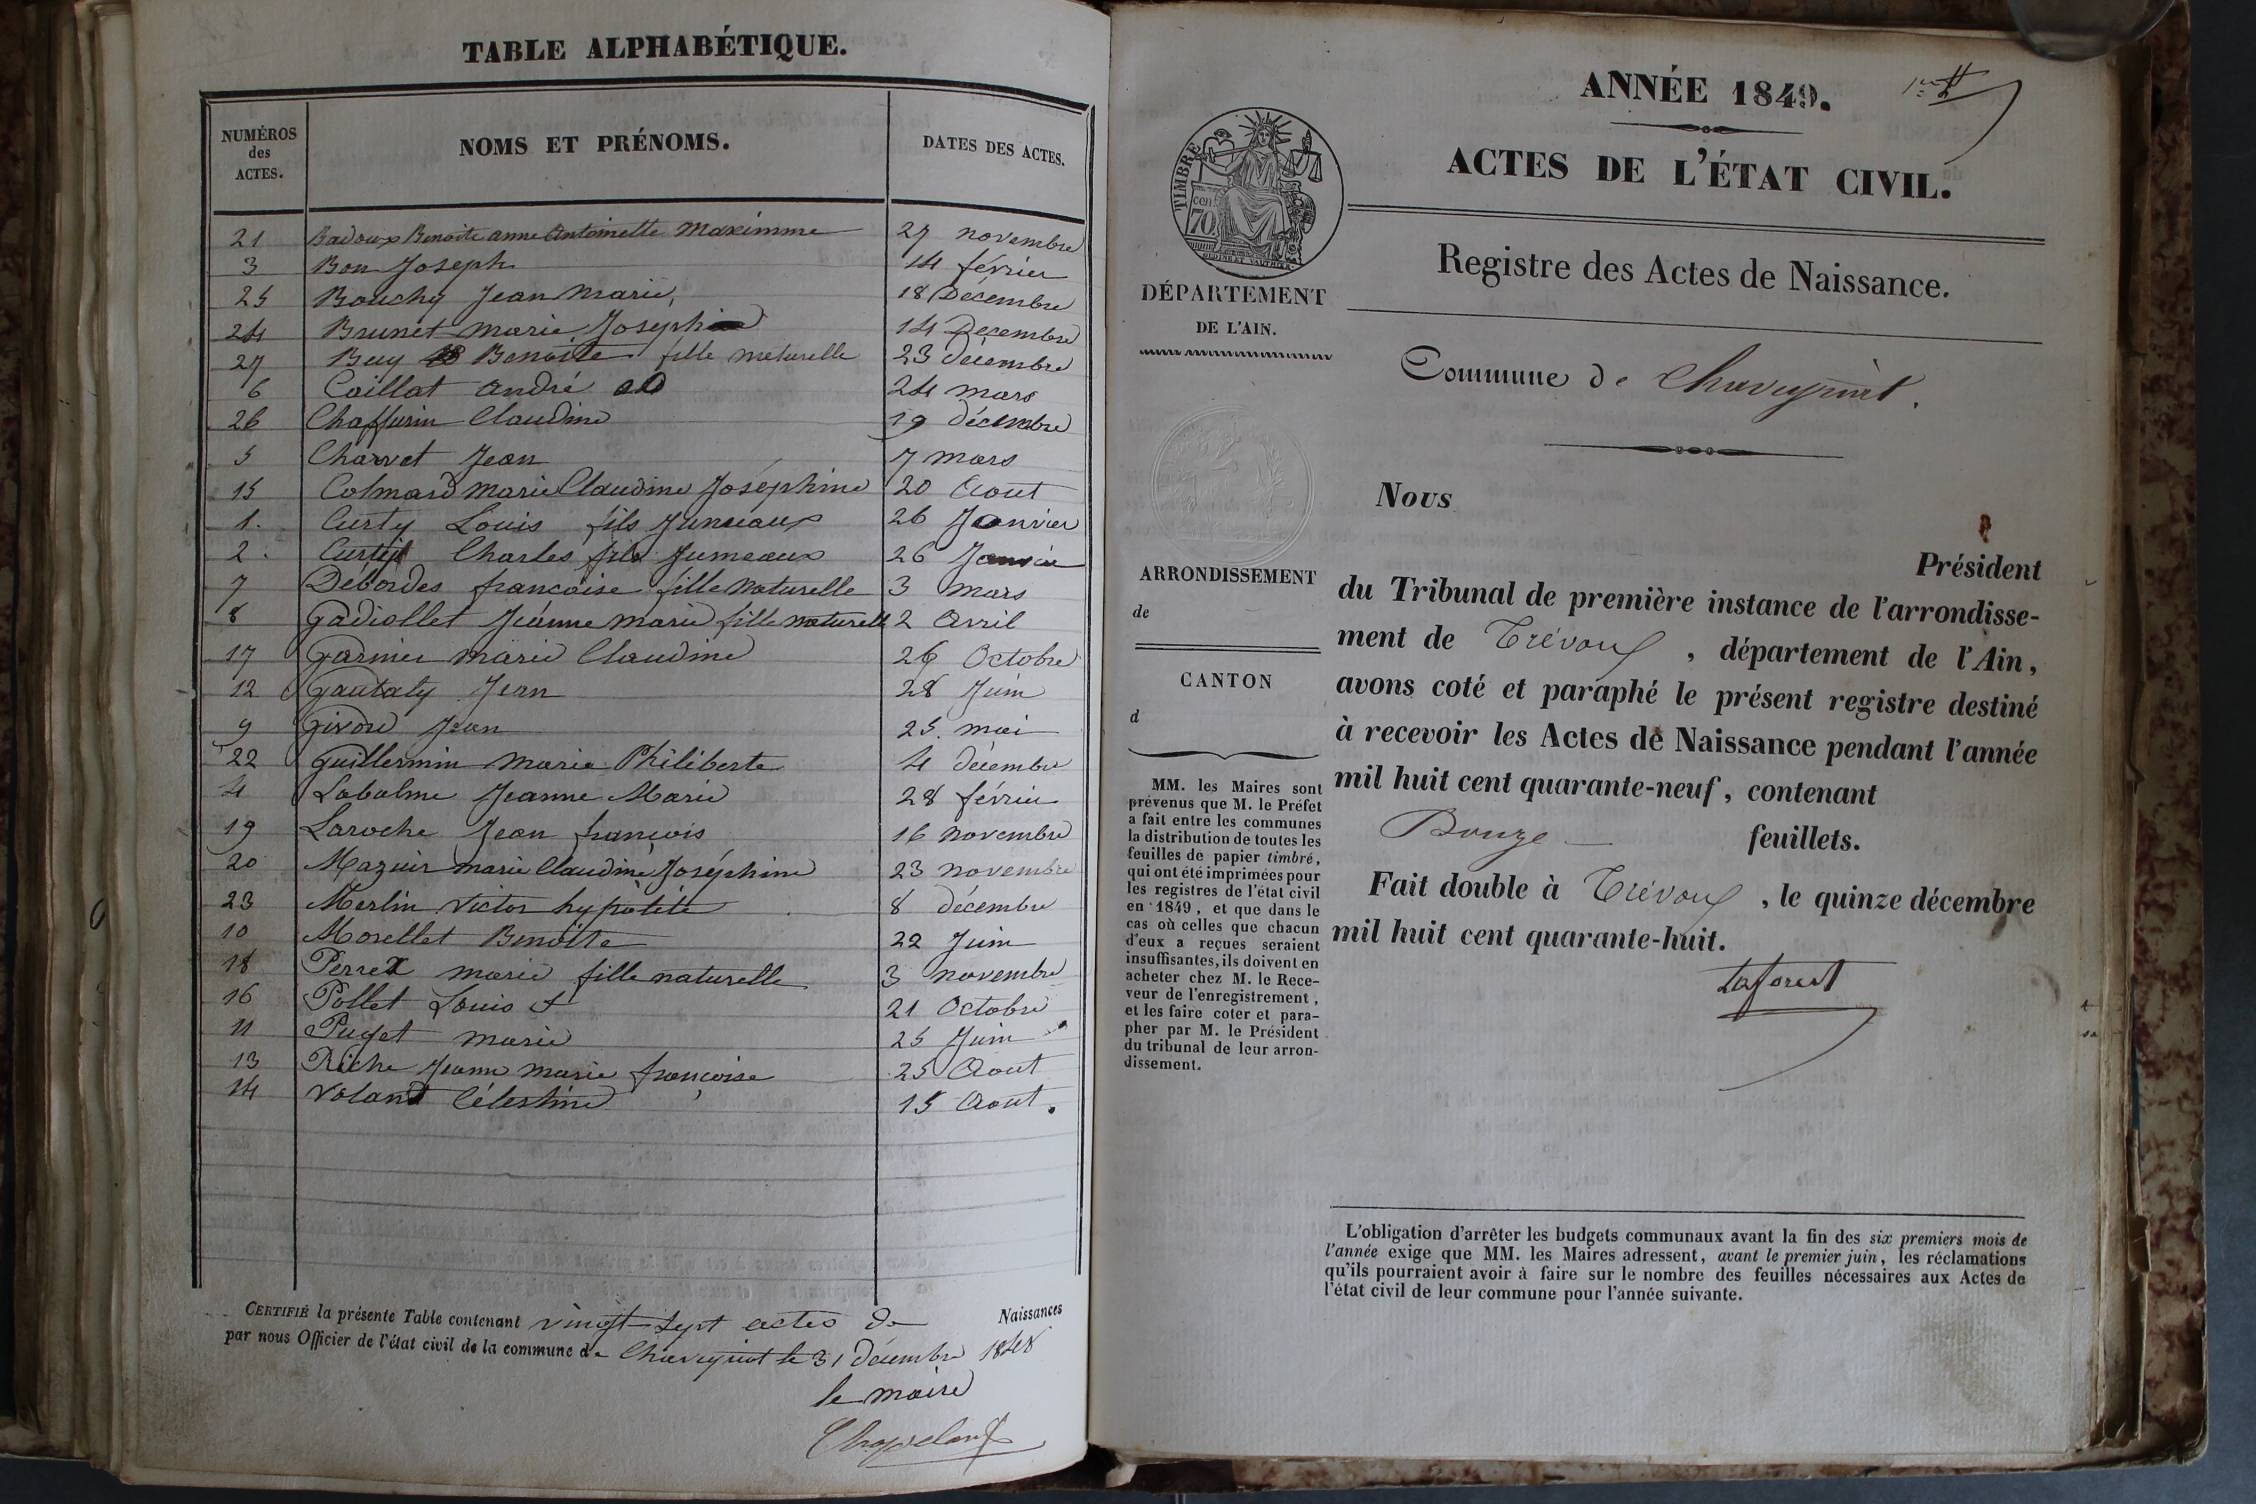 TABLE ALPHABÉTIQUE.
NUMÉROS des ACTES. NOMS ET PRÉNOMS. DATES DES ACTES.
21 Badoux Benoite anne Antoinette Maximme 27 novembre
3 Bon Joseph 14 février
25 Bouchy Jean Marie, 18 Décembre
24 Brunet marie Joseph 14 Decembre
27 Buy Benoite fille naturelle 23 décembre
6 Caillat andré 24 mars
26 Chaffurin Claudine 19 décembre
5 Charvet Jean 7 mars
15 Colmard marie Claudine Joséphine 20 Aout
1. Curty Louis fils Jumeaux 26 Janvier
2. Curty Charles fils Jumeaux 26 Janvier
7 Debordes francoise fille Naturelle 3 mars
8 Gadiollet Jeanne marie fille naturelle 2 Avril
17 Garnier marie Claudine 26 Octobre
12 Gautaty Jean 28 Juin
9 Givord Jean 25. mai
22 Guillermin Marie Philiberte 4 décembre
4 Labalme Jeanne Marie 28 février
19 Laroche Jean françois 16 novembre
20 Mazuir marie Claudine Joséphine 23 novembre
23 Merlin Victor hypolite 8 décembre
10 Morellet Benoite 22 Juin
18 Perret marie fille naturelle 3 novembre
16 Pollet Louis 21 Octobre
11 Puget marie 25 Juin
13 Riche Jeanne marie françoise 25 Aout
14 Volant Célestine 15 Aout.
CERTIFIÉ la présente Table contenant vingt-sept actes de Naissances
par nous Officier de l'état civil de la commune de Chaveyriat le 31 décembre 1848
le maire
ANNÉE 1849.
ACTES DE L'ÉTAT CIVIL.
TIMBRE
cen.
70
Registre des Actes de Naissance.
DÉPARTEMENT
DE L'AIN.
Commune de Chaveyriat.
Nous
Président
du Tribunal de première instance de l'arrondisse-
ment de Trévoux, département de l'Ain,
avons coté et paraphé le présent registre destiné
à recevoir les Actes de Naissance pendant l'année
mil huit cent quarante-neuf, contenant
feuillets.
Fait double à Trévoux, le quinze décembre
mil huit cent quarante-huit.
Laforest
ARRONDISSEMENT
de
CANTON
d
MM. les Maires sont
prévenus que M. le Préfet
a fait entre les communes
la distribution de toutes les
feuilles de papier timbré,
qui ont été imprimées pour
les registres de l'état civil
en 1849, et que dans le
cas où celles que chacun
d'eux a reçues seraient
insuffisantes, ils doivent en
acheter chez M. le Rece-
veur de l'enregistrement,
et les faire coter et para-
pher par M. le Président
du tribunal de leur arron-
dissement.
L'obligation d'arrêter les budgets communaux avant la fin des six premiers mois de
l'année exige que MM. les Maires adressent, avant le premier juin, les réclamations
qu'ils pourraient avoir à faire sur le nombre des feuilles nécessaires aux Actes de
l'état civil de leur commune pour l'année suivante.